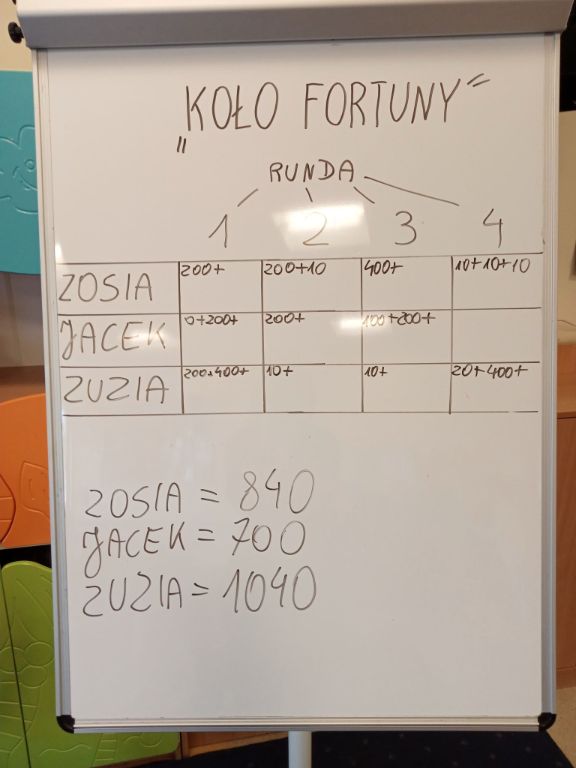 „KOŁO FORTUNY”
RUNDA
1 2 3 4
ZOSIA 200+ 200+10 400+ 10+10+10
JACEK 0+200+ 200+ 100+200+
ZUZIA 200+400+ 10+ 10+ 20+400+
ZOSIA = 840
JACEK = 700
ZUZIA = 1040